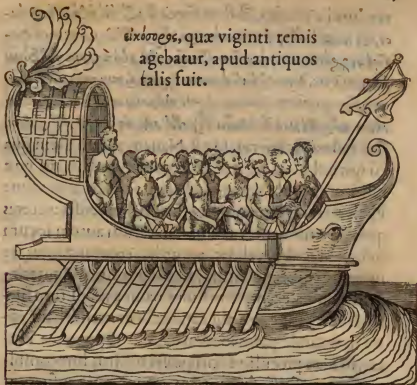 εἰκόσορος, quæ viginti remis
agebatur, apud antiquos
talis fuit.